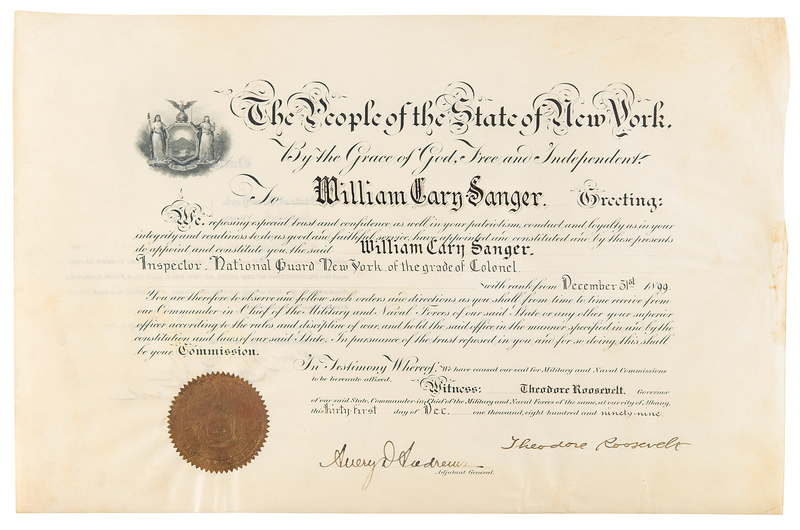 The People of the State of New York.
By the Grace of God, Free and Independent:
To William Cary Sanger. Greeting:
We, reposing especial trust and confidence as well in your patriotism, conduct and loyalty as in your
integrity and readiness to do us good and faithful service, have appointed and constituted and by these presents
do appoint and constitute you, the said William Cary Sanger.
Inspector. National Guard New York. of the grade of Colonel.
with rank from December 31st 1899
You are therefore to observe and follow such orders and directions as you shall from time to time receive from
our Commander in Chief of the Military and Naval Forces of our said State or any other your superior
officer according to the rules and discipline of war, and hold the said office in the manner specified in and by the
constitution and laws of our said State. In pursuance of the trust reposed in you and for so doing, this shall
be your Commission.
In Testimony Whereof, We have caused our seal for Military and Naval Commissions
to be hereunto affixed.
Witness: Theodore Roosevelt. Governor
of our said State, Commander-in-Chief of the Military and Naval Forces of the same, at our city of Albany,
this thirty-first day of Dec. one thousand, eight hundred and ninety-nine.
Theodore Roosevelt
Avery D Andrews
Adjutant General.